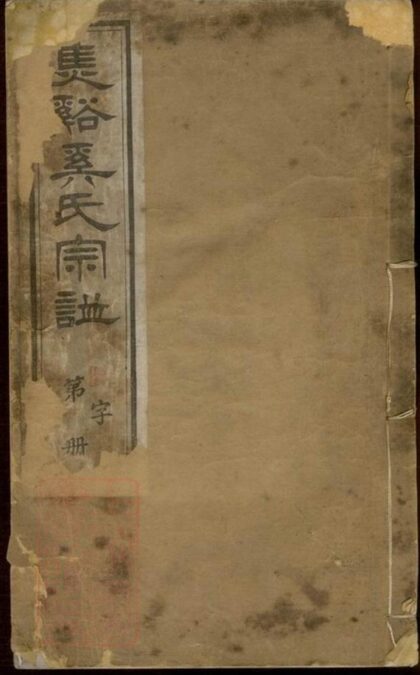 焦谿奚氏宗譜
第
字
册